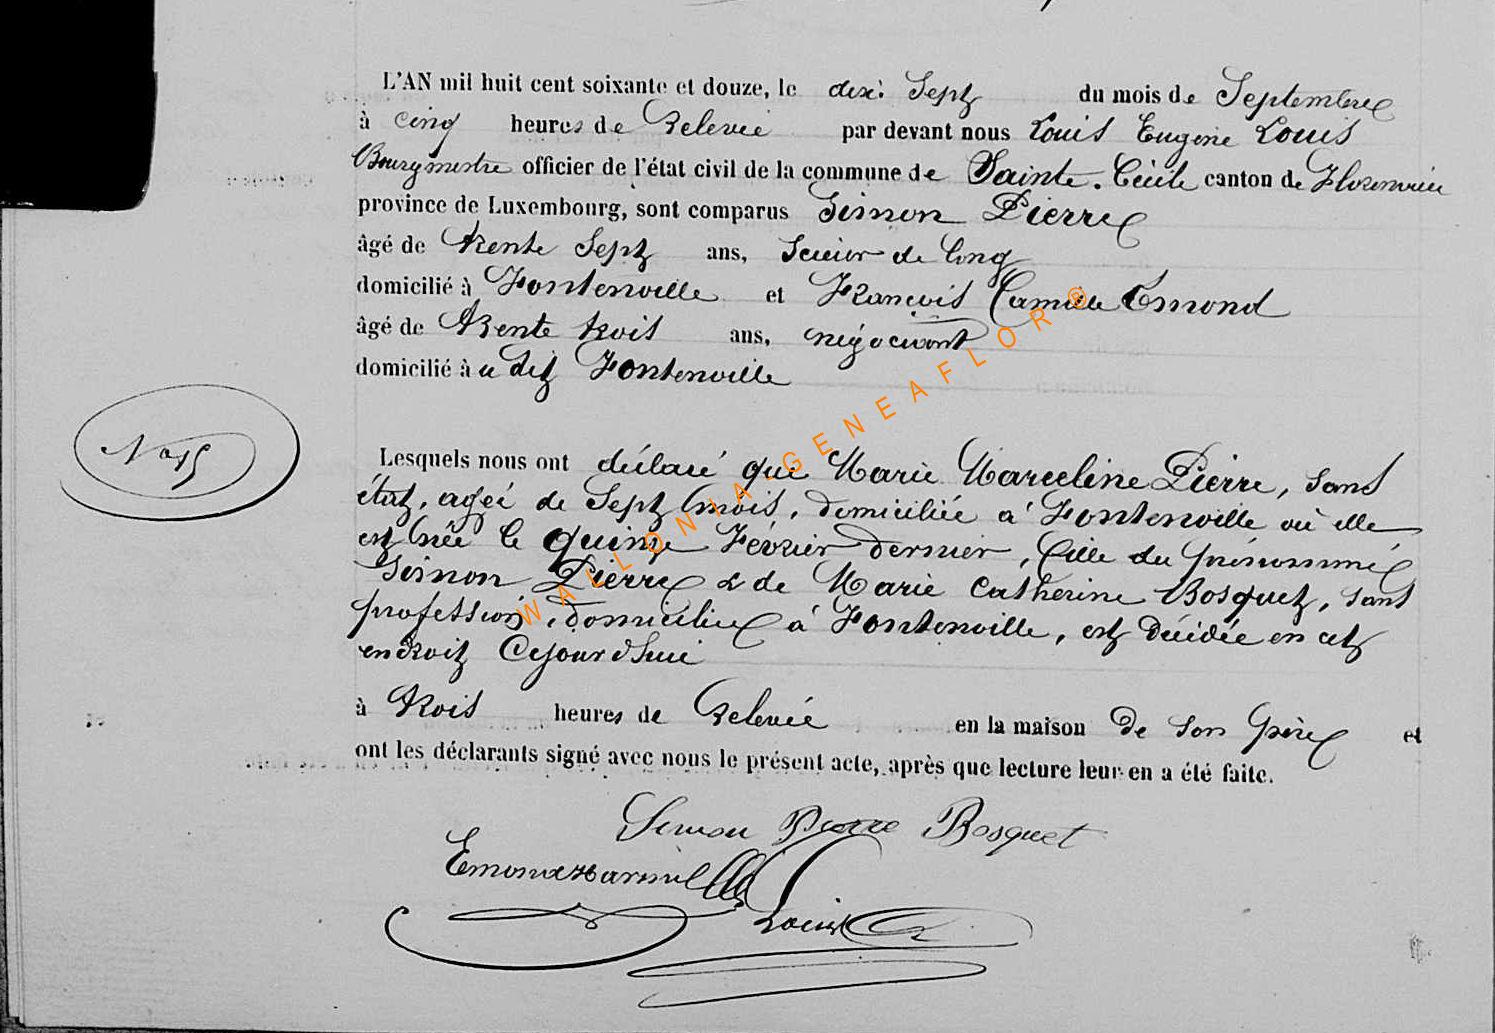 L'AN mil huit cent soixante et douze, le dix: Sept du mois de Septembre
à cinq heures de Relevée par devant nous Louis Eugene Louis
Bourgmestre officier de l'état civil de la commune de Sainte-Cécile canton de Florenville
province de Luxembourg, sont comparus Simon Pierre
âgé de trente Sept ans, Scieur de long
domicilié à Fontenoille et François Camille Emond
âgé de trente trois ans, négociant
domicilié à u dit Fontenoille
N° 15
Lesquels nous ont déclaré que Marie Marceline Pierre, sans
état, agée de Sept mois, domiciliée à Fontenoille où elle
est née le quinze Février dernier, fille du prénommé
Simon Pierre & de Marie Catherine Bosquet, sans
profession, domiciliée à Fontenoille, est décédée en cet
endroit Cejourd'hui
à trois heures de Relevée en la maison de son père et
ont les déclarants signé avec nous le présent acte, après que lecture leur en a été faite.
Simon Pierre Bosquet
Louis
WALLONIA-GENEAFLOR®